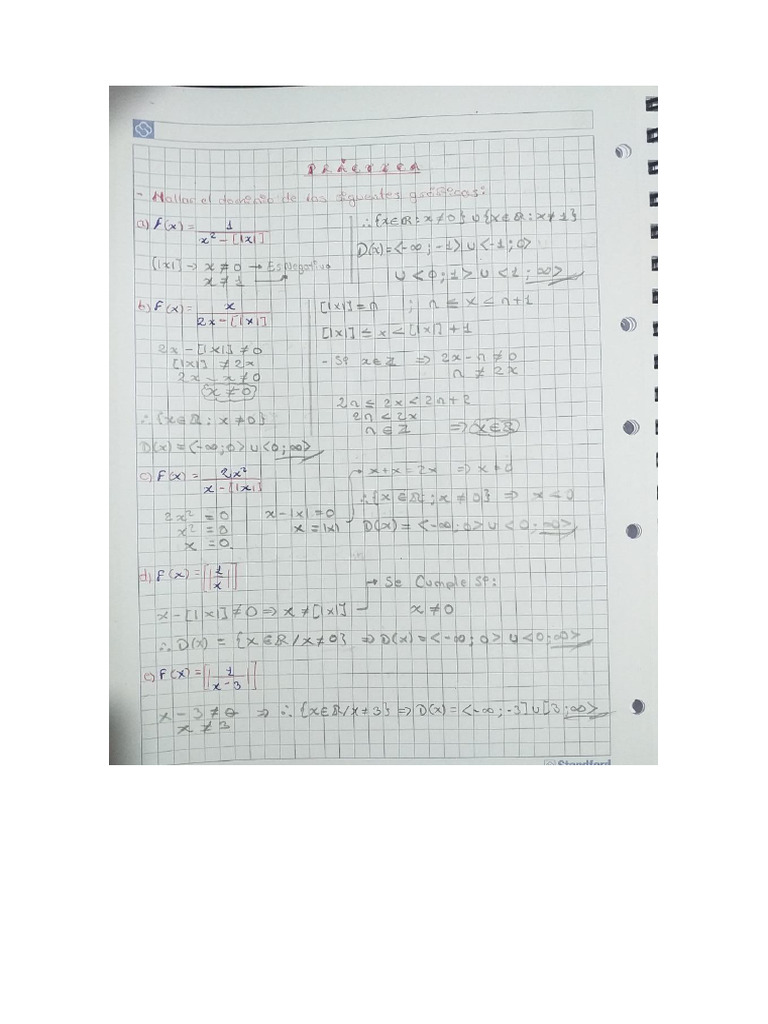 PRÁCTICA
- Hallar el dominio de las siguientes gráficas:
a) F(x) = 1 / x² - [|x|]
[|x|] → x ≠ 0 → Es negativo
x ≠ 1
∴ {x∈R : x ≠ 0} ∪ {x∈R : x ≠ 1}
D(x) = <-∞ ; -1> ∪ <-1 ; 0>
∪ <0 ; 1> ∪ <1 ; ∞>
b) F(x) = x / 2x - [|x|]
2x - [|x|] ≠ 0
[|x|] ≠ 2x
2x - x ≠ 0
x ≠ 0
∴ {x∈R : x ≠ 0}
D(x) = <-∞ ; 0> ∪ <0 ; ∞>
[|x|] = n ; n ≤ x < n+1
[|x|] ≤ x < [|x|] + 1
- Si x∈Z ⇒ 2x - n ≠ 0
n ≠ 2x
2n ≤ 2x < 2n + 2
2n < 2x
n ∈ Z ⇒ x∈R
c) F(x) = 2x² / x - [|x|]
2x² = 0
x² = 0
x = 0
x - |x| = 0
x = |x|
→ x + x = 2x ⇒ x ≠ 0
∴ {x ∈ R ; x ≠ 0} ⇒ x < 0
D(x) = <-∞ ; 0> ∪ <0 ; ∞>
d) F(x) = [|1/x|]
x - [|x|] ≠ 0 ⇒ x ≠ [|x|]
→ Se Cumple Si:
x ≠ 0
∴ D(x) = {x∈R / x ≠ 0} ⇒ D(x) = <-∞ ; 0> ∪ <0 ; ∞>
e) F(x) = [|1 / x - 3|]
x - 3 ≠ 0
x ≠ 3
⇒ ∴ {x∈R / x ≠ 3} ⇒ D(x) = <-∞ ; -3] ∪ [3 ; ∞>
Standford